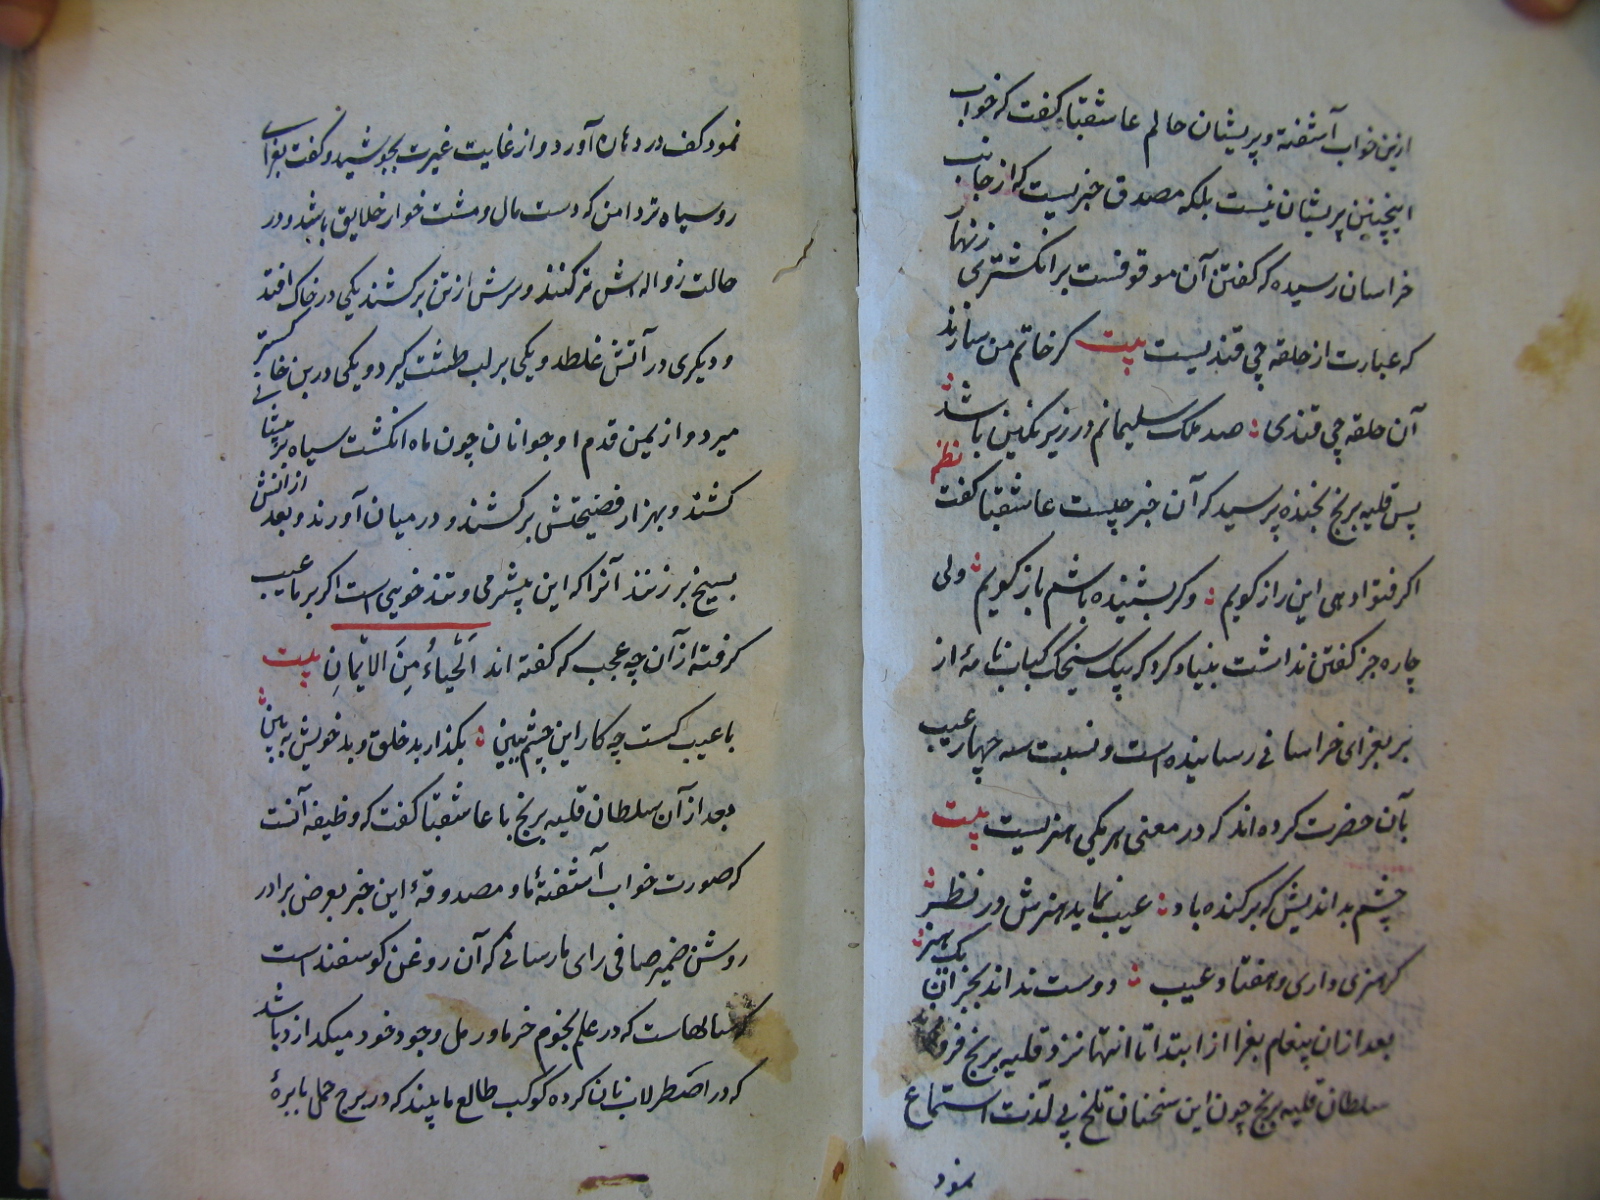 ازین خواب آشفته و پریشان حالم عاشقبقا گفت که خواب
اینچنین پریشان نیست بلکه مصدق خبریست که از جانب
خراسان رسیده که گفتن آن موقوفست بر انگشتری زنهار
که عبارت از حلقه چی قندیست بیت گر خاتم من سازند
آن حلقه چی قندی صد ملک سلیمانم در زیر نگین باشد
پس قلیه برنج بخنده پرسید که آن خبر چیست عاشقبقا گفت نظم
اگر فتوا دهی این راز گویم وگر بشنیده باشم باز گویم ولی
چاره جز گفتن نداشت بنیاد کرد که پیک سیخک کباب نامهٔ از
بر بغرای خراسانی رسانیده است و نسبت سه چهار عیب
بآن حضرت کرده اند که در معنی هر یکی هنریست بیت
چشم بداندیش که برکنده باد عیب نماید هنرش در نظر
گر هنری داری و هفتاد عیب دوست نداند بجز آن یک هنر
بعد ازان پیغام بغرا از ابتدا تا انتها نزد قلیه برنج فرو
سلطان قلیه برنج چون این سخنان تلخ بی لذت استماع
نمود
نمود کف در دهان آورد و از غایت غیرت بجوشید و گفت بغرای
روسیاه تردامن که دست مال و مشت خوار خلایق باشد و در
حالت زواله اش تر کنند و سرش از تن برکشند یکی در خاک افتد
و دیگری در آتش غلطد و یکی بر لب طشت گیرد و یکی درین خاکستر
میرد و از یمن قدم او جوانان چون ماه انگشت سیاه بر پیشانی
کشند و بهزار فضیحتش برکشند و در میان آورند و بعد از انش
بسیخ بر زنند آنرا که این بیشرمی و تندخویی است اگر بر ما عیب
گرفته از آن چه عجب که گفته اند اَلحَیاءُ مِنَ الایمانِ بیت
با عیب کست چه کار این چشم ببین بگذار بد خلق و بد خویش ببین
بعد از آن سلطان قلیه برنج با عاشقبقا گفت که وظیفه آنست
که صورت خواب آشفتهٔ ما و مصدوقهٔ این خبر بعرض برادر
روشن ضمیر صافی رای ما رسانی که آن روغن گوسفند است
که سالهاست که در علم نجوم خرما و رمل وجود خود میگدازد باشد
که در اصطرلاب نان کرده کوکب طالع ما بیند که در برج حمل بابرهٔ